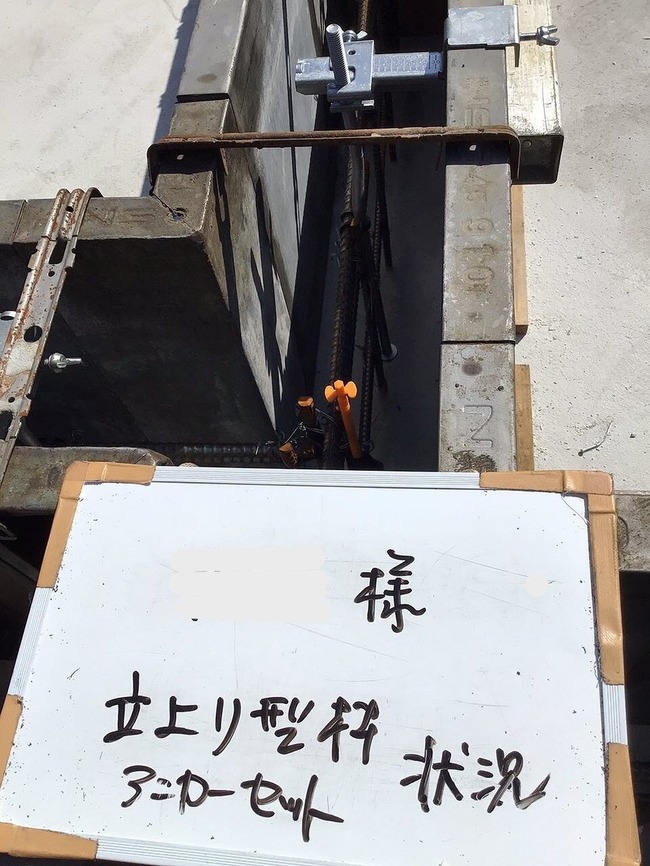 様
立より型枠
アンカーセット 状況
N